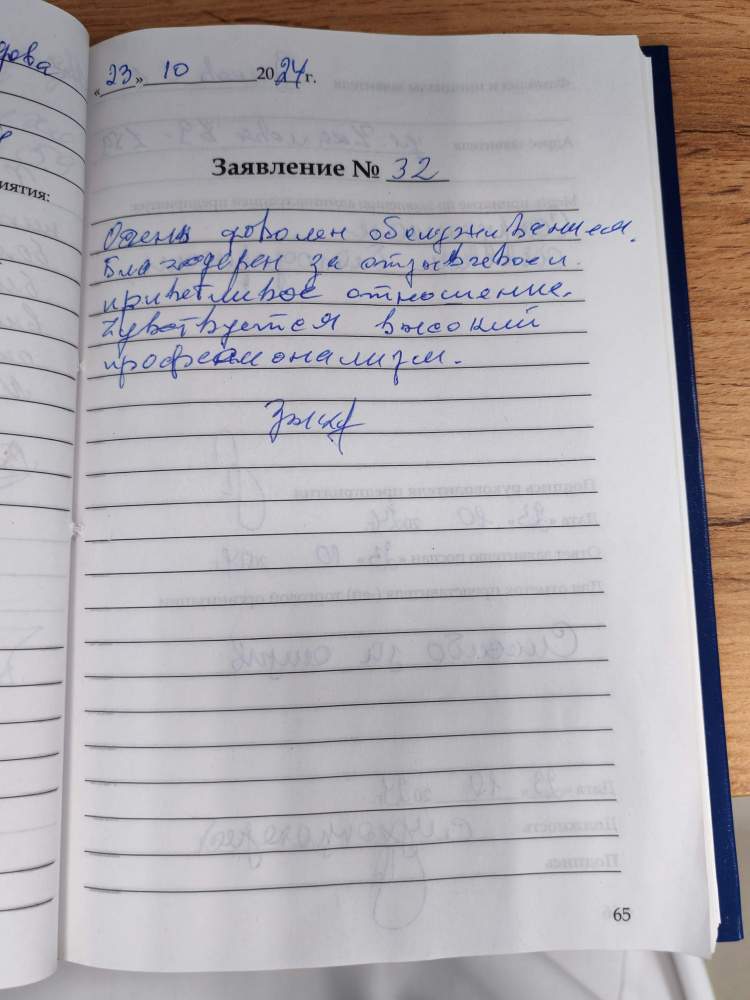 «23» 10 2024г.
Заявление № 32
Очень доволен обслуживанием.
Благодарен за отзывчивое и
приветливое отношение.
Чувствуется высокий
профессионализм.
иятия:
65